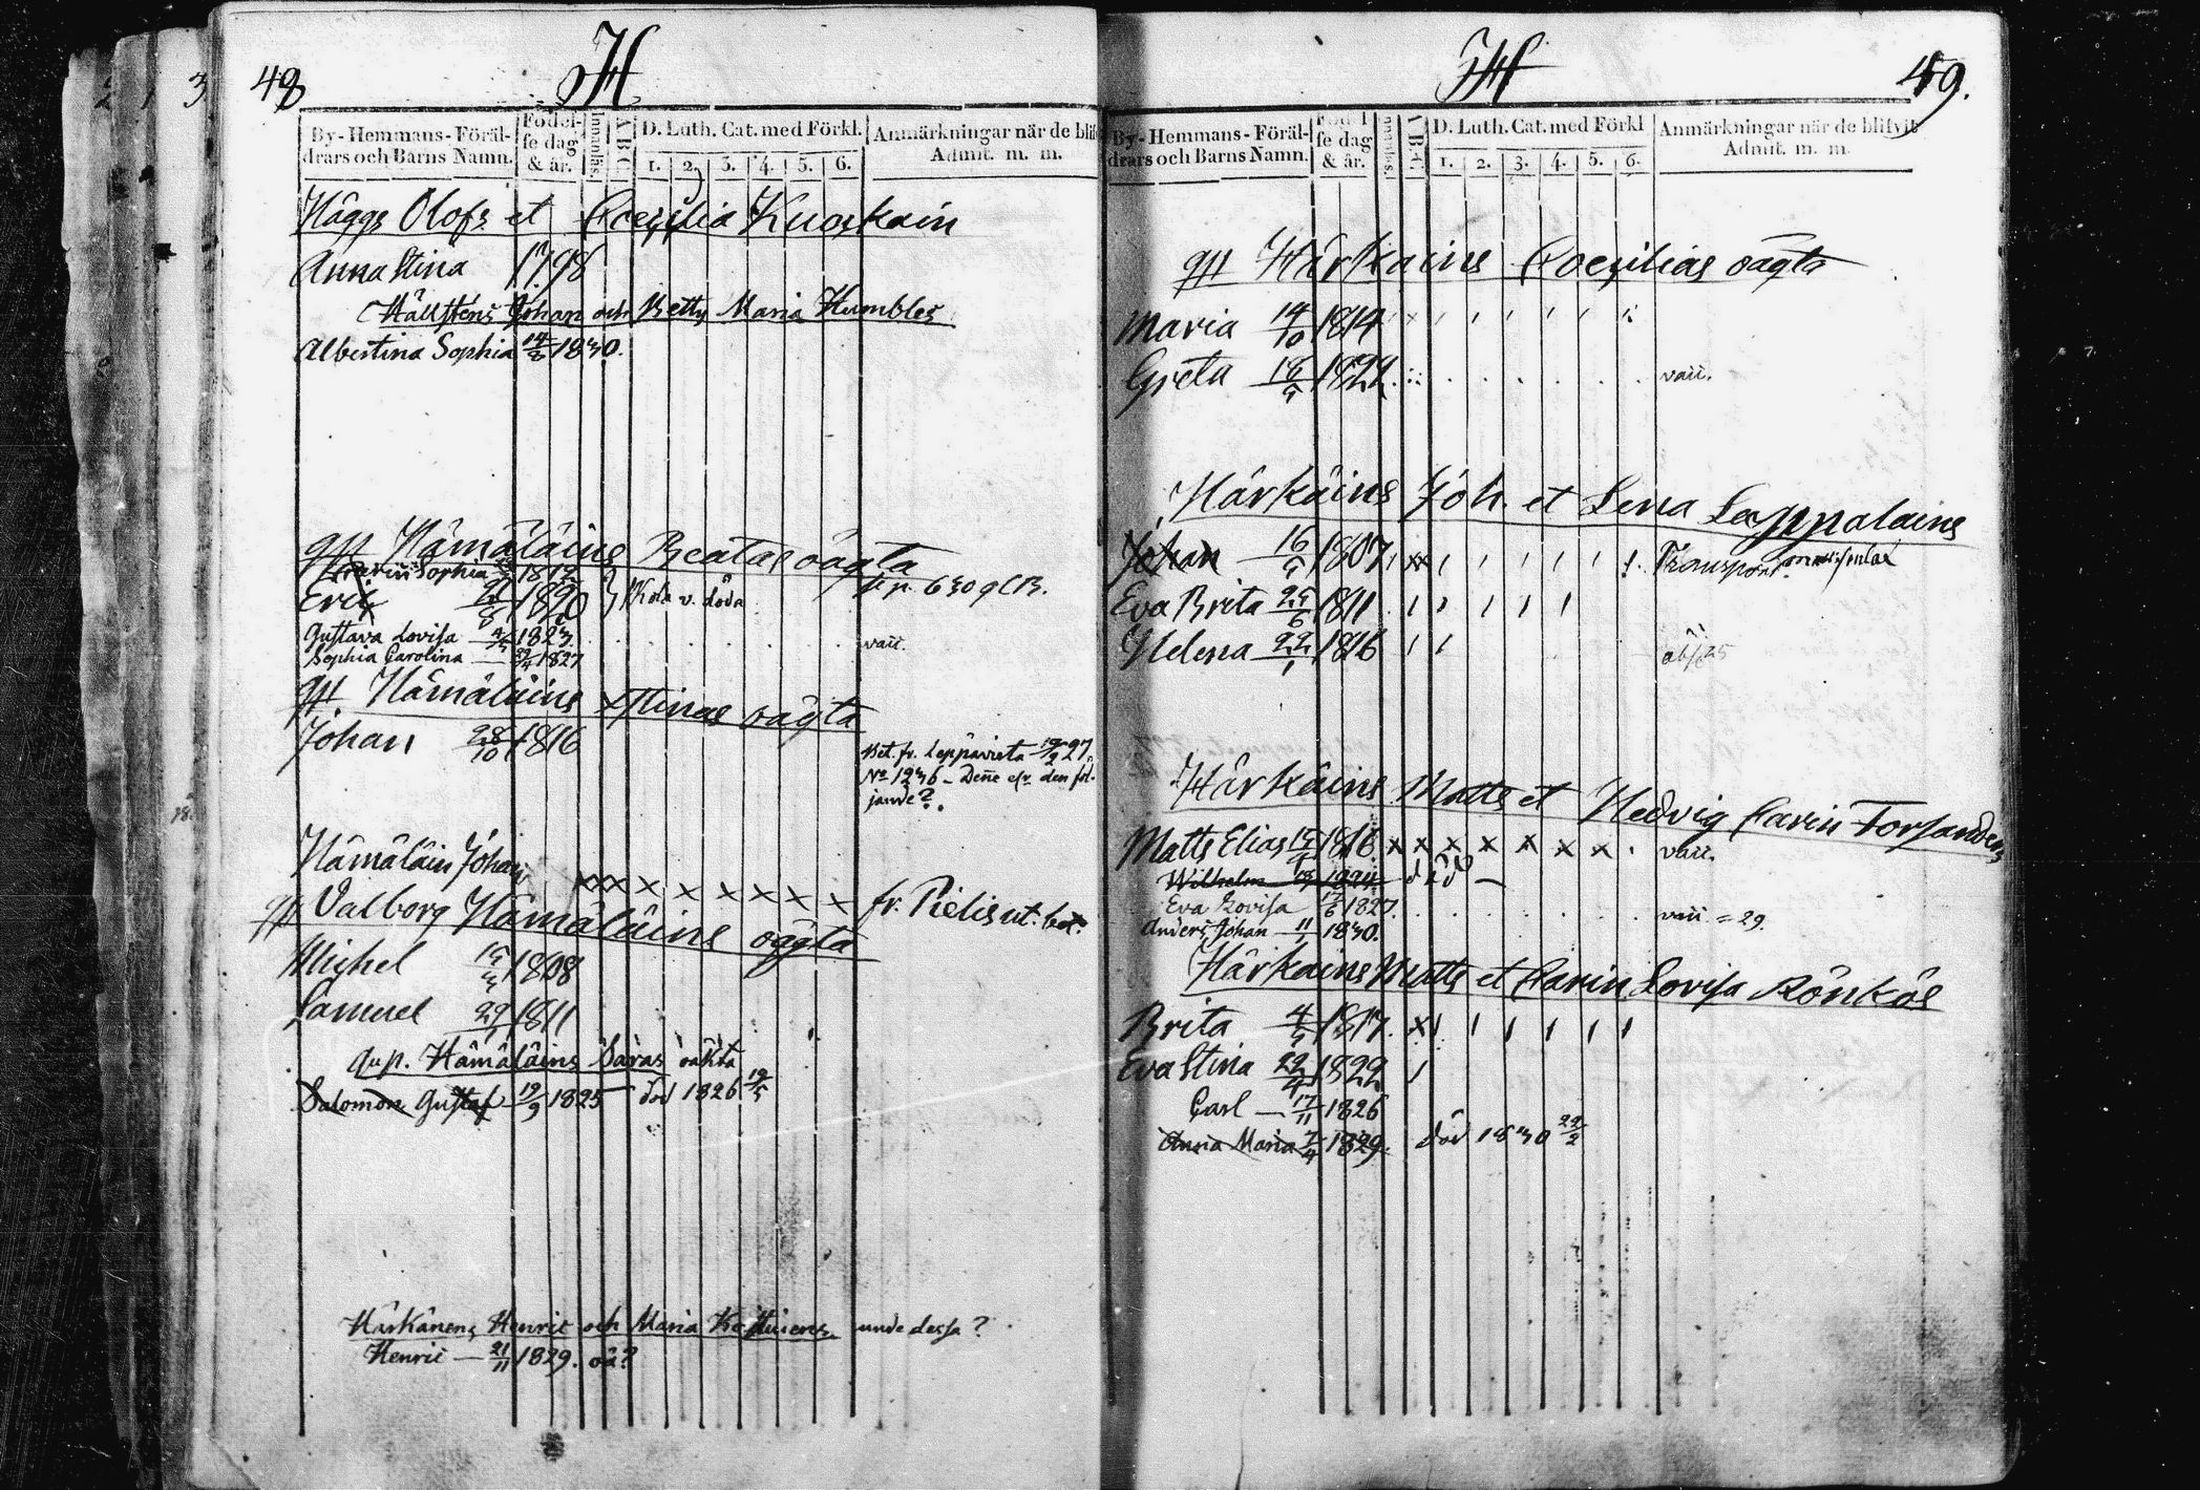 48
H
By-Hemmans-Föräl-
drars och Barns Namn.
Födel-
se dag
& år.
Innanläs.
ABC
D. Luth. Cat. med Förkl.
1. 2. 3. 4. 5. 6.
Anmärkningar när de blif
Admit. m. m.
Häggs Olofs et Coecilia Kuoskain
Anna Stina 1798
Hällstens Johan och Betty Maria Humbles
Albertina Sophia 14/3 1830.
qp Hämäläins Beatas oägta
Sophia 1812
Eric 1820 Kola v. döda
Gustava Lovisa 1823. vacc.
Sophia Carolina 22/4 1827
qp. Hämäläins Stinas oägta
Johan 28/10 1816
Bet. fr. Leppävirta 19/2 27.
No 1236 – Denne el. den föl-
jande?.
Hämäläin Johan x x x x x x x x fr. Pielis ut. bet.
qp Valborg Hämäläins oägta
Michel 15/3 1808
Samuel 1811
qup. Hämäläins Saras oäkta
Salomon Gustaf 19/9 1825 död 1826 19/5
Härkänens Henric och Maria unde dessa?
Henric 21/11 1829. oä?
H
49.
By-Hemmans-Föräl-
drars och Barns Namn.
Födel-
se dag
& år.
Innanläs.
ABC
D. Luth. Cat. med Förkl
1. 2. 3. 4. 5. 6.
Anmärkningar när de blifvit
Admit. m. m.
qp Härkäins Coecilias oägta
Maria 14/10 1814
Greta 1822. vacc.
Härkäins Joh. et Lena Lappalains
Johan 16/5 1807 Transport.
Eva Brita 25/6 1811
Helena 22/1 1816
Härkäins Matts et Hedvig Carin Forsanders
Matts Elias 1816 x x x x x x x vacc.
Wilhelm 1824 död
Eva Lovisa 17/6 1827. vacc. = 29.
Anders Johan 11/1 1830.
Härkäins Matts et Carin Lovisa Rönkös
Brita 4/5 1817. x
Eva Stina 22/4 1822
Carl 17/11 1826
Anna Maria 7/4 1829. död 1830 22/2